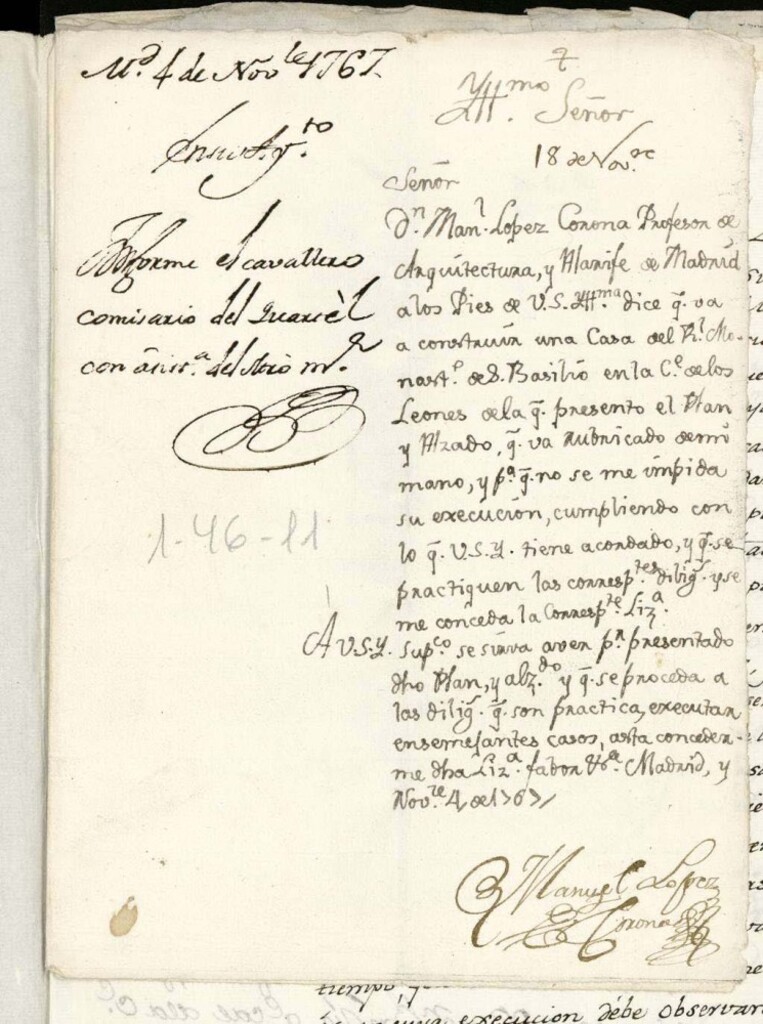 M.d 4 de Nov.le 1767.
En su Ay.to
Informe el cavallero
comisario del Quartèl
con asist.a del Arq.to m.r
1-46-11
+
Yll.mo Señor
18 de Nov.re
Señor
D.n Man.l Lopez Corona Profesor de
Arquitectura, y Alarife de Madrid
a los Pies de V.S.Yll.ma dice q. va
a construir una Casa del R.l Mo-
nast.o de S. Basilio en la C.e de los
Leones de la q. presento el Plan
y Alzado, q. va rubricado de mi
mano, y p.a q. no se me impida
su execución, cumpliendo con
lo q. V.S.Y. tiene acordado, y q. se
practiquen las corresp.tes dilig.s y se
me conceda la Corresp.te Liz.a
A V.S.Y. Sup.co se sirva aver p.r presentado
dho Plan, y alz.do y q. se proceda a
las dilig.s q. son practica, executar
en semejantes casos, asta conceder-
me dha Liz.a fabor &.a Madrid, y
Nov.re 4, de 1767/
Manuel Lopez
Corona
tiempo, y
execucion debe observar